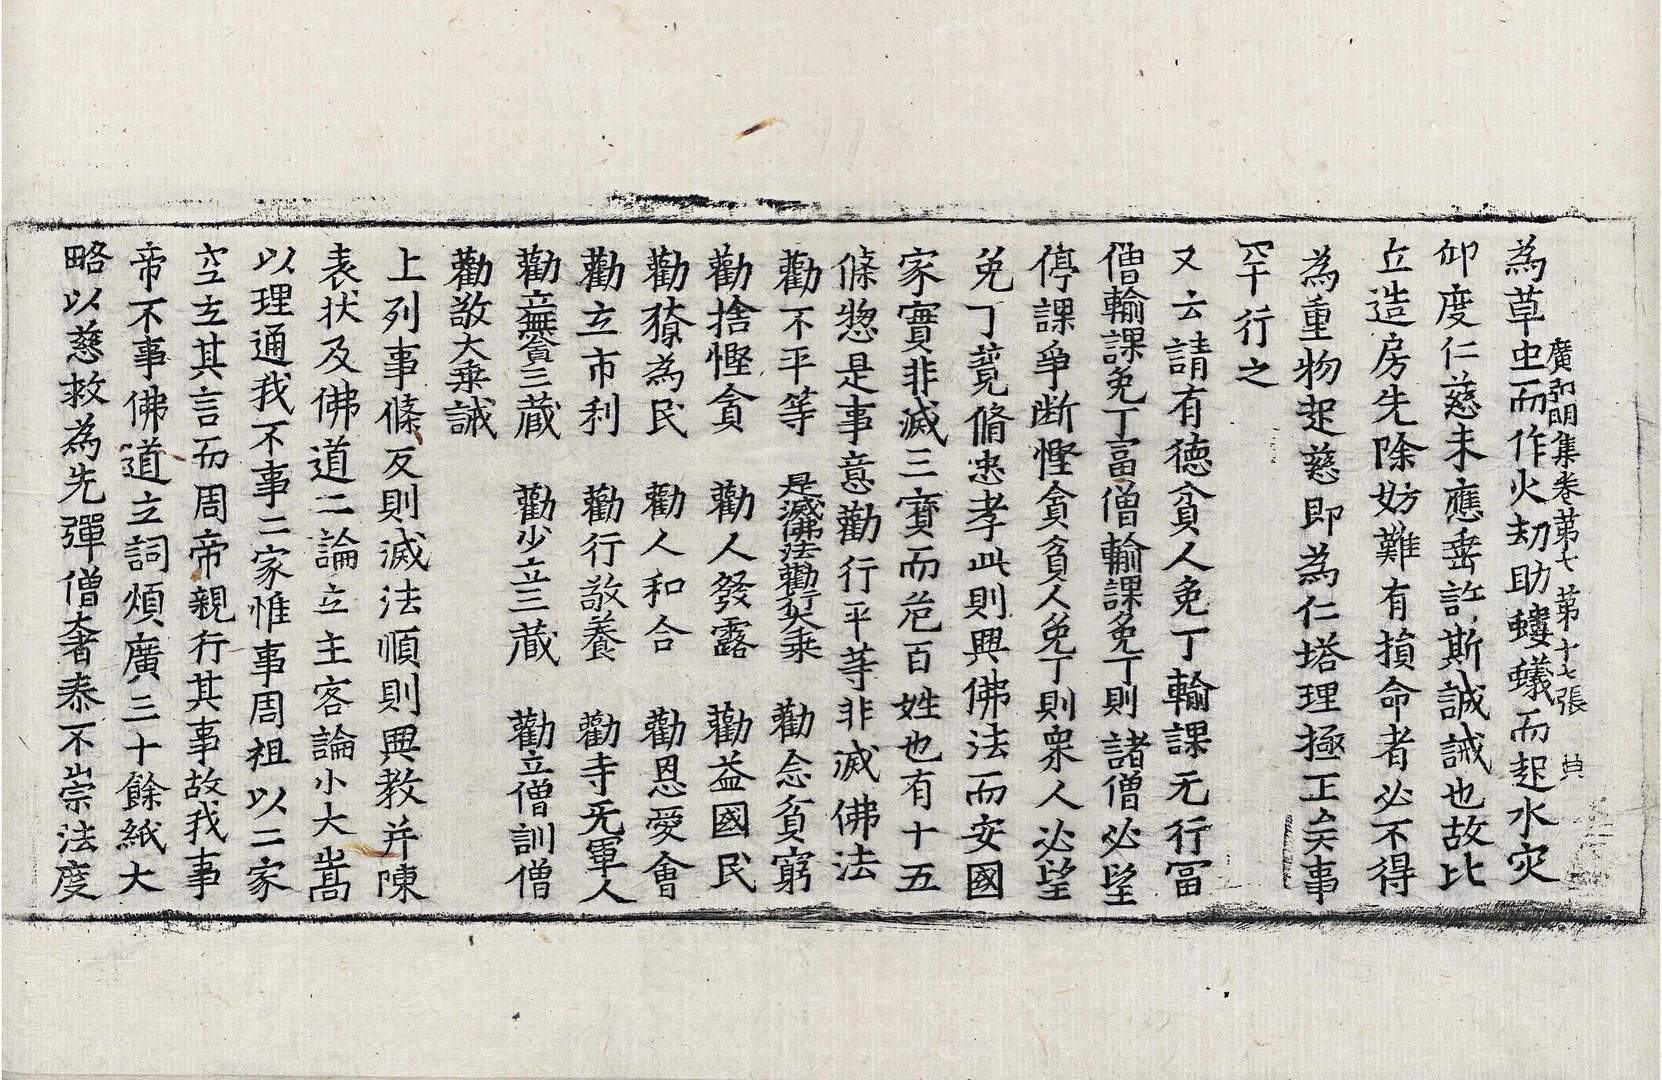 廣弘明集卷第七 第十七張 典
為草虫而作火劫助螻蟻而起水灾
仰度仁慈未應垂許斯誠誡也故比
丘造房先除妨難有損命者必不得
為重物起慈即為仁塔理極正矣事
罕行之
又云請有德貧人免丁輸課无行冨
僧輸課免丁富僧輸課免丁則諸僧必望
停課爭断慳貪貧人免丁則衆人必望
免丁競脩忠孝此則興佛法而安國
家實非滅三寶而危百姓也有十五
條惣是事意勸行平等非滅佛法
勸不平等 是滅佛法勸行大乘 勸念貧窮
勸捨慳貪 勸人發露 勸益國民
勸獠為民 勸人和合 勸恩愛會
勸立市利 勸行敬養 勸寺无軍人
勸立無貧三蔵 勸少立三蔵 勸立僧訓僧
勸敬大乗誡
上列事條反則滅法順則興教并陳
表状及佛道二論立主客論小大嵩
以理通我不事二家惟事周祖以二家
空立其言而周帝親行其事故我事
帝不事佛道立詞煩廣三十餘紙大
略以慈救為先彈僧奢泰不崇法度